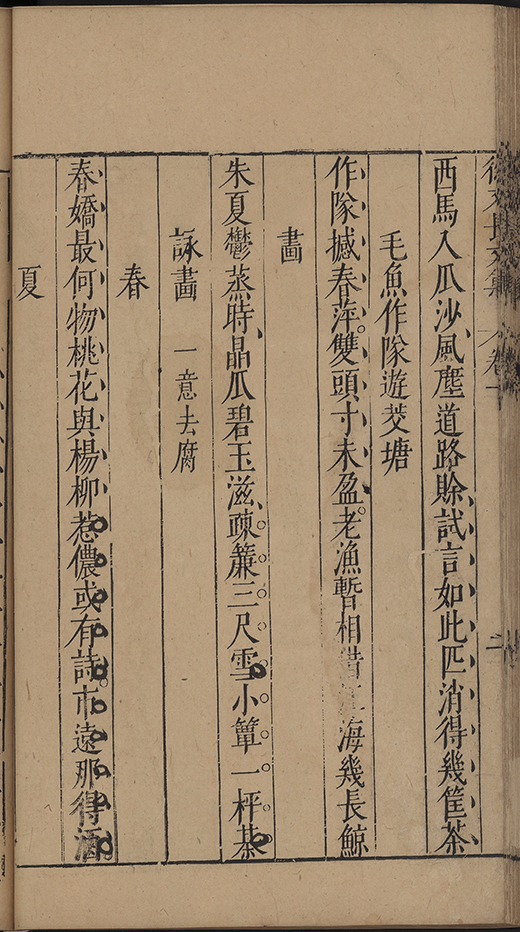 徐文長文集 卷十 二
西馬入瓜沙風塵道路賒試言如此匹消得幾筐茶
毛魚作隊遊茭塘
作隊撼春萍雙頭寸未盈老漁暫相惜 海幾長鯨
畫
朱夏鬱蒸時晶瓜碧玉滋疎簾三尺雪小簟一枰棊
詠畫 一意去腐
春
春嬌最何物桃花與楊柳惹儂或有詩市遠那得酒
夏